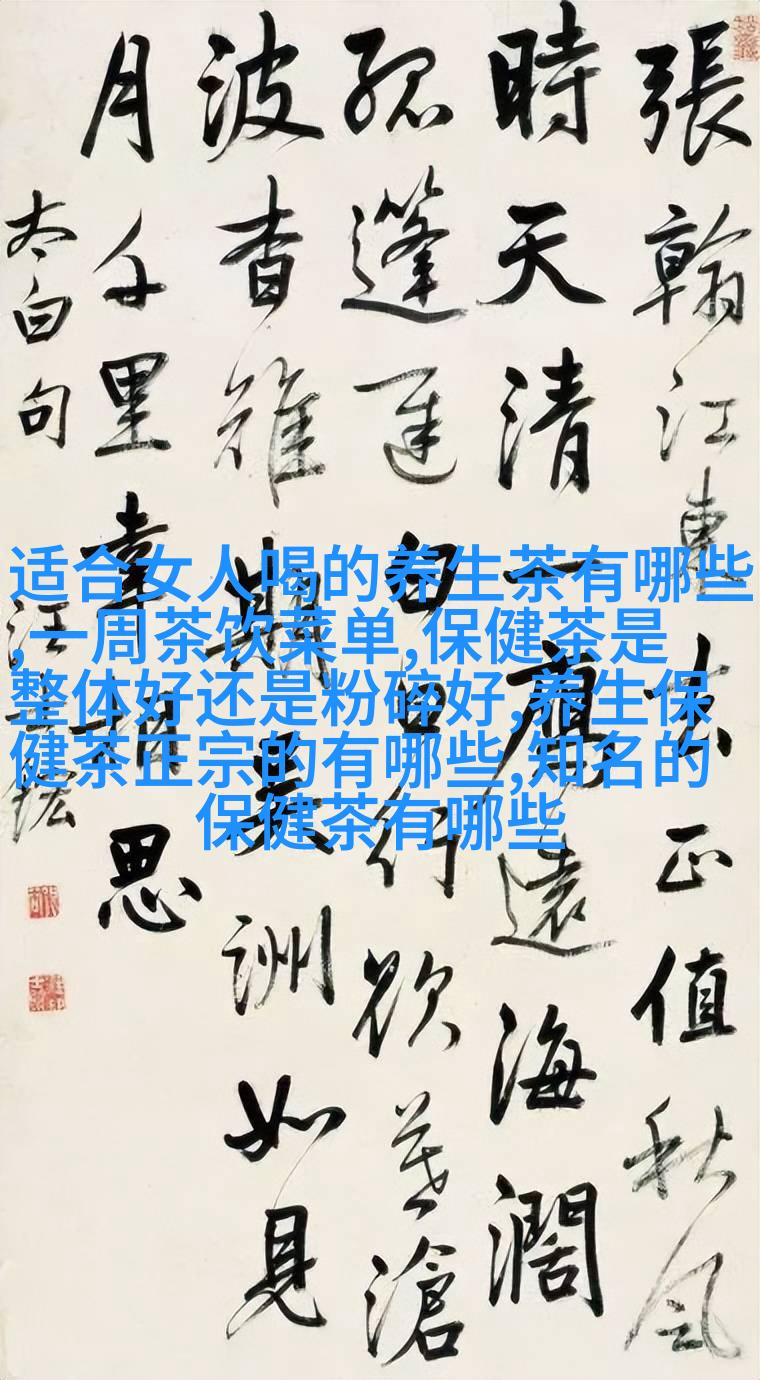 張翰江東去正值秋風
時天清一雁遠海濶
孤篷遲白日行欲暮滄
波杳難期吳洲如見
月千里幸相思
太白句
汪士鋐
适合女人喝的养生茶有哪些
,一周茶饮菜单,保健茶是
整体好还是粉碎好,养生保
健茶正宗的有哪些,知名的
保健茶有哪些